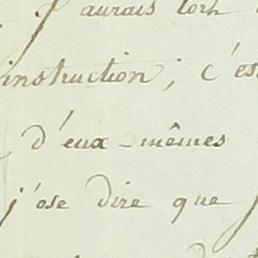 J'aurais tort
instruction ; c'es
d'eux-mêmes
j'ose dire que j